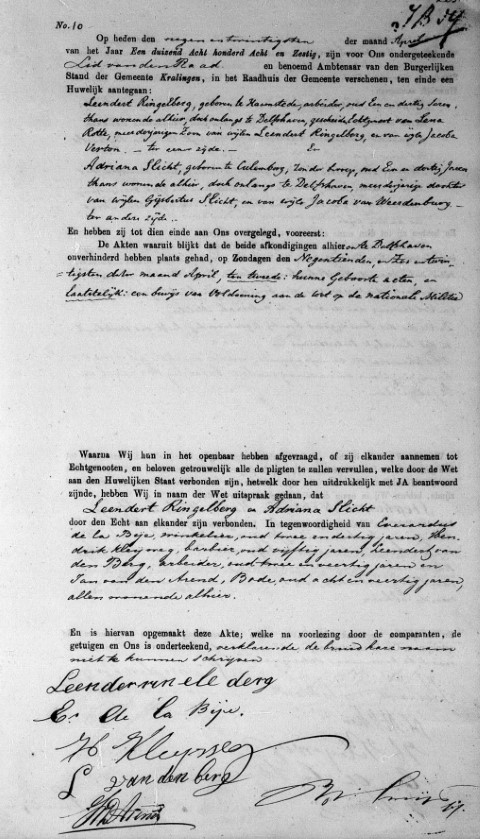 No. 10
Op heden den negen en twintigsten der maand April
van het Jaar Een duizend Acht honderd Acht en Zestig, zijn voor Ons ondergeteekende
Lid van den Raad en benoemd Ambtenaar van den Burgerlijken
Stand der Gemeente Kralingen, in het Raadhuis der Gemeente verschenen, ten einde een
Huwelijk aantegaan:
Leendert Ringelberg, geboren te Heemstede, arbeider, oud Een en dertig Jaren,
thans wonende alhier, doch onlangs te Delfshaven, gescheide Echtgenoot van Lena
Rotte, meerderjarigen Zoon van wijlen Leendert Ringelberg, en van wijle Jacoba
Verton. — ter eener zijde. — En
Adriana Slicht, geboren te Culemborg, Zonder beroep, oud Een en dertig Jaren
thans wonende alhier, doch onlangs te Delfshaven meerderjarige dochter
van wijlen Gijsbertus Slicht, en van wijle Jacoba van Weerdenburg
ter andere zijde.
En hebben zij tot dien einde aan Ons overgelegd, vooreerst:
De Akten waaruit blijkt dat de beide afkondigingen alhier en te Delfshaven
onverhinderd hebben plaats gehad, op Zondagen den Negentienden, en Zes en twin-
tigsten dezer maand April, ten tweede: hunne Geboorte acten, en
laatstelijk: een bewijs van Voldoening aan de Wet op de nationale Militie
Waarna Wij hun in het openbaar hebben afgevraagd, of zij elkander aannemen tot
Echtgenooten, en beloven getrouwelijk alle de pligten te zullen vervullen, welke door de Wet
aan den Huwelijken Staat verbonden zijn, hetwelk door hen uitdrukkelijk met JA beantwoord
zijnde, hebben Wij in naam der Wet uitspraak gedaan, dat
Leendert Ringelberg en Adriana Slicht
door den Echt aan elkander zijn verbonden. In tegenwoordigheid van Everardus
de la Bije, winkelier, oud twee en dertig jaren, Hen-
drik Kleyweg, barbier, oud vijftig jaren, Leendert van
den Berg, arbeider, oud twee en veertig jaren en
Jan van den Arend, Bode, oud acht en veertig jaren,
allen wonende alhier.
En is hiervan opgemaakt deze Akte; welke na voorlezing door de comparanten, de
getuigen en Ons is onderteekend, verklarende de bruid hare naam
niet te kunnen schrijven
E. de la Bije.
H Kleyweg
L van den berg